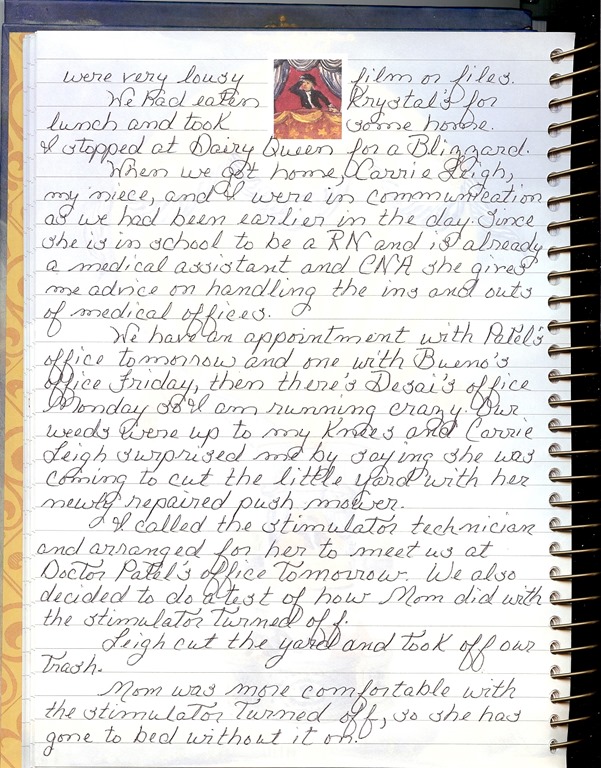 were very lousy film or files.
We had eaten Krystal's for
lunch and took some home.
I stopped at Dairy Queen for a Blizzard.
When we got home, Carrie Leigh,
my niece, and I were in communication
as we had been earlier in the day. Since
she is in school to be a RN and is already
a medical assistant and CNA she gives
me advice on handling the ins and outs
of medical offices.
We have an appointment with Patel's
office tomorrow and one with Bueno's
office Friday, then there's Desai's office
Monday so I am running crazy. Our
weeds were up to my knees and Carrie
Leigh surprised me by saying she was
coming to cut the little yard with her
newly repaired push mower.
I called the stimulator technician
and arranged for her to meet us at
Doctor Patel's office tomorrow. We also
decided to do a test of how Mom did with
the stimulator turned off.
Leigh cut the yard and took off our
trash.
Mom was more comfortable with
the stimulator turned off, so she has
gone to bed without it on.